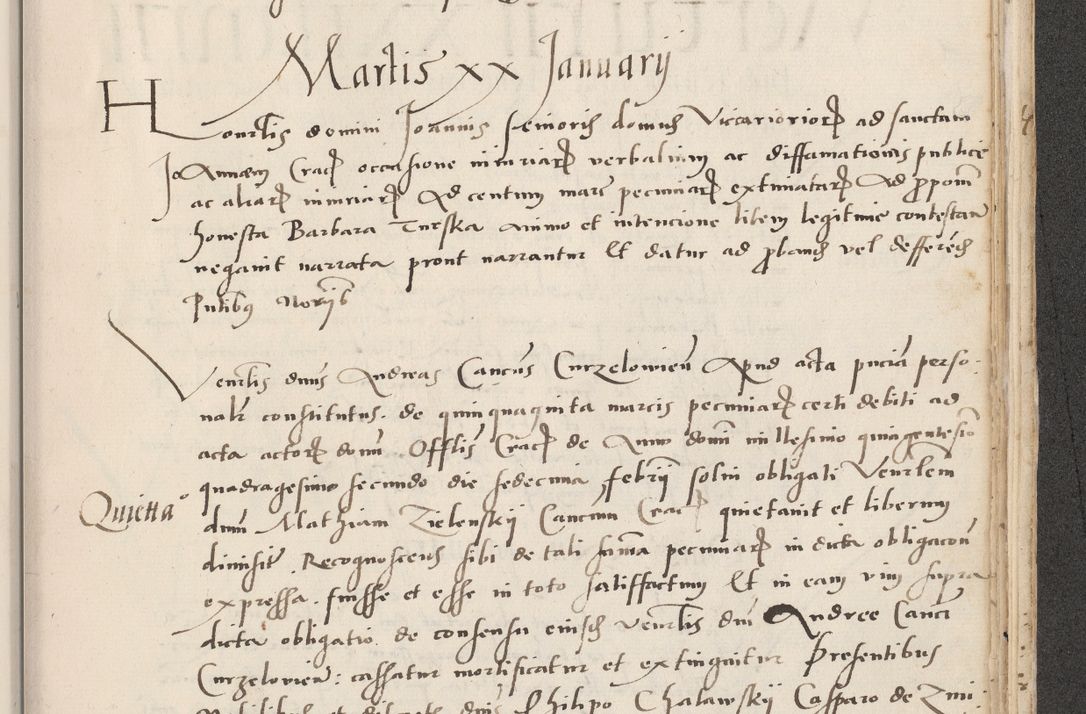 Martis xx Januarij
Honorabilis domini Joannis senioris domus Viccariorioꝝ ad sanctam
Annam Cracꝝ occasione iniuriaꝝ verbalium ac diffamationis publice
ac aliaꝝ iniuriaꝝ Ad centum marc pecuniaꝝ extimataꝝ Ad ꝓpoñ
honesta Barbara Turska animo et intencione litem legitime contestan
negauit narrata prout narrantur Et datur ad ꝓband vel defferend
Pñtibus Notarijs
Venerlis dnus Andreas Cancus Curzelouien Apud acta pñcia perso-
nalr constitutus. de quinquaginta marcis pecuniaꝝ certi debiti ad
acta actoꝝ domi Offlis Cracꝝ de Anno domi millesimo quingentesio
quadragesimo secundo die sedecima febrij solui obligati Venerlem
Quietta°
dnm Mathiam Zielenskij Cancum Crac quietauit et liberum
dimisit. Recognoscens sibi de tali summa pecuniaꝝ in dicta obligacon
expressa. fuisse et esse in toto satisffactum Et in eam vim supra
dicta obligatio de consensu eiusd venerlis dni Andree Canci
Curzelouien: cassatur mortificatur et extinguitur Presentibus
Philipo Chalawskij Casparo de Zmi-